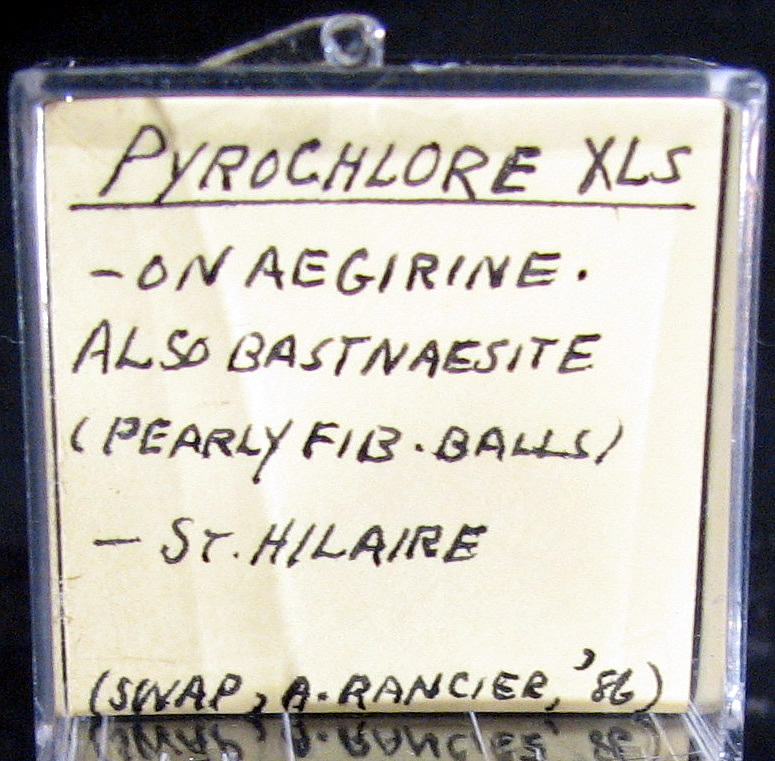 PYROCHLORE XLS
- ON AEGIRINE.
ALSO BASTNAESITE
(PEARLY FIB. BALLS)
- ST. HILAIRE
(SWAP, A. RANCIER, '86)